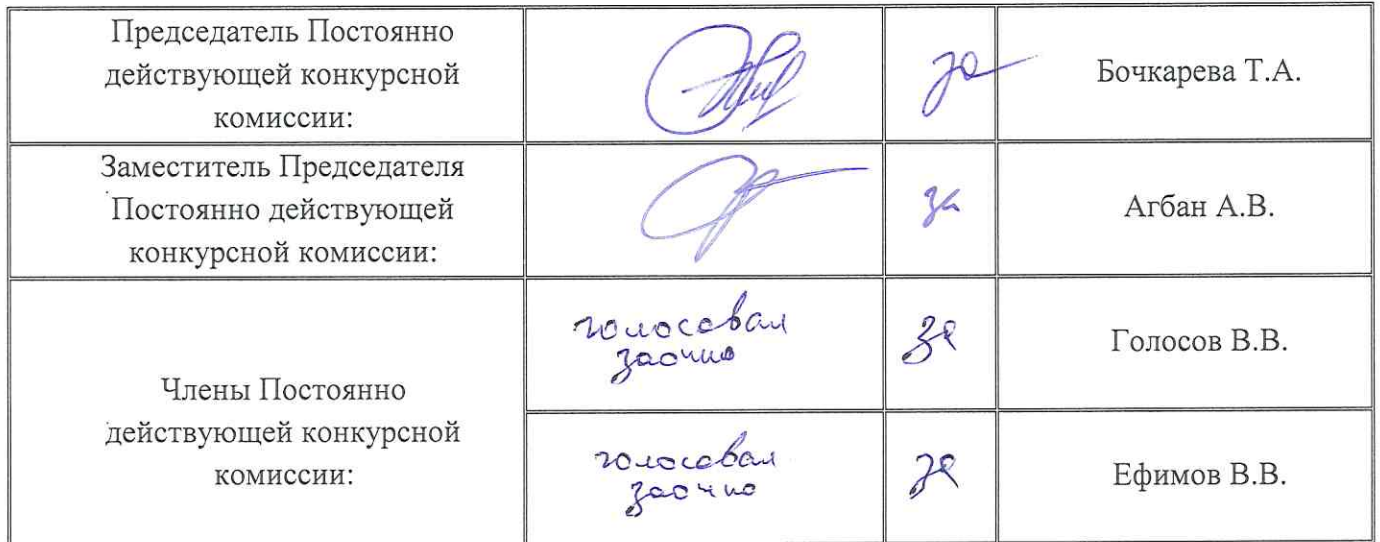 Председатель Постоянно
действующей конкурсной
комиссии:
за
Бочкарева Т.А.
Заместитель Председателя
Постоянно действующей
конкурсной комиссии:
за
Агбан А.В.
Члены Постоянно
действующей конкурсной
комиссии:
голосовал
заочно
за
Голосов В.В.
голосовал
заочно
за
Ефимов В.В.